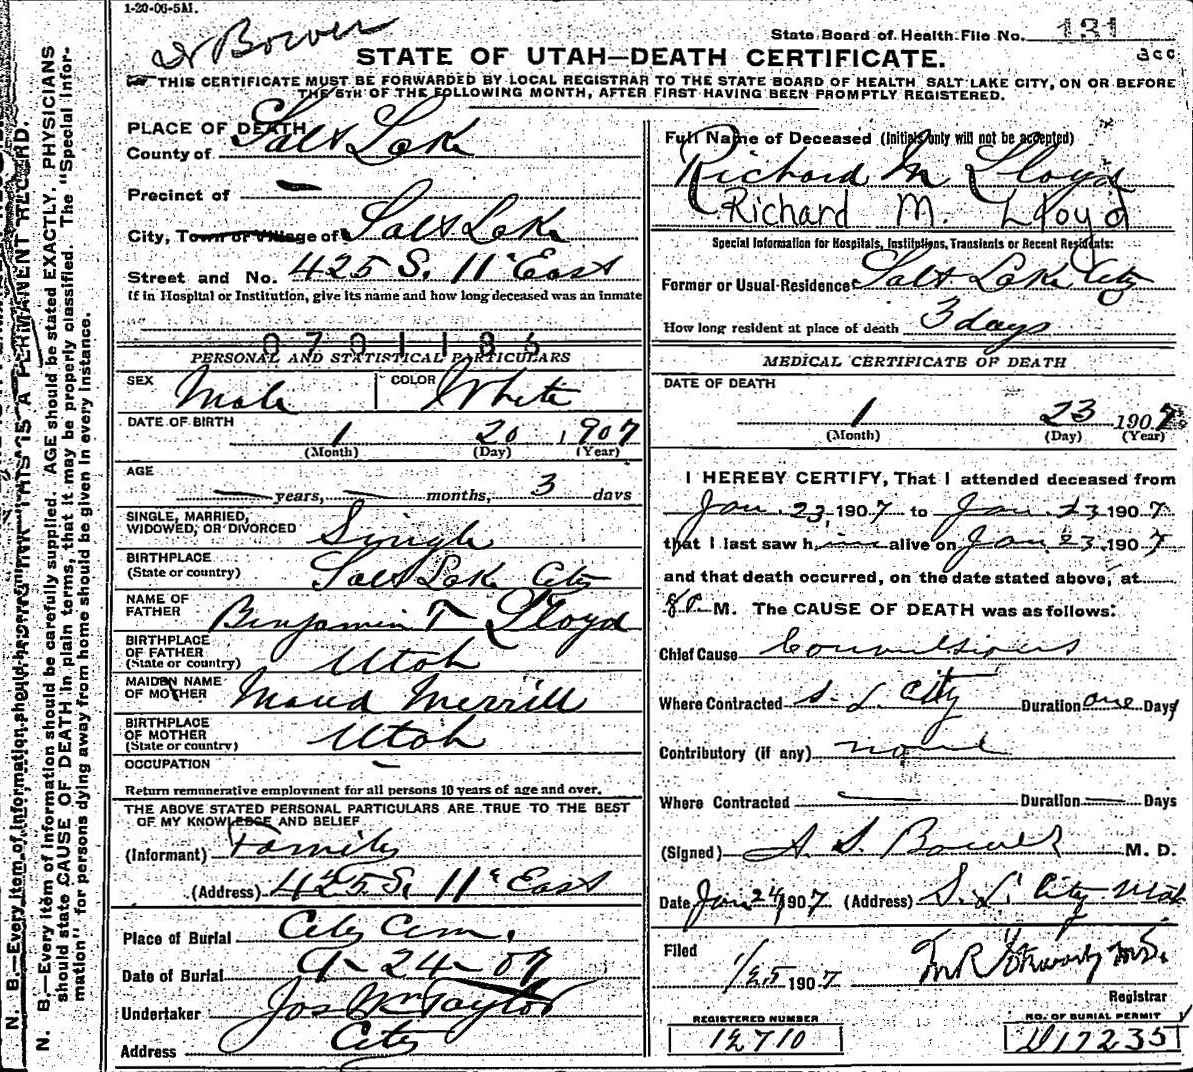 1-20-06-5M.
Dr Bower
State Board of Health File No. 131
STATE OF UTAH—DEATH CERTIFICATE.
THIS CERTIFICATE MUST BE FORWARDED BY LOCAL REGISTRAR TO THE STATE BOARD OF HEALTH, SALT LAKE CITY, ON OR BEFORE
THE 5TH OF THE FOLLOWING MONTH, AFTER FIRST HAVING BEEN PROMPTLY REGISTERED.
N. B.—Every item of information should be carefully supplied. AGE should be stated EXACTLY. PHYSICIANS
should state CAUSE OF DEATH in plain terms, that it may be properly classified. The "Special Infor-
mation" for persons dying away from home should be given in every instance.
PLACE OF DEATH
County of Salt Lake
Precinct of —
City, Town or Village of Salt Lake
Street and No. 425 S. 11 East
If in Hospital or Institution, give its name and how long deceased was an inmate
0701186
PERSONAL AND STATISTICAL PARTICULARS
SEX Male COLOR White
DATE OF BIRTH 1 20 1907
(Month) (Day) (Year)
AGE — years, — months, 3 days
SINGLE, MARRIED,
WIDOWED, OR DIVORCED Single
BIRTHPLACE
(State or country) Salt Lake City
NAME OF
FATHER Benjamin T Lloyd
BIRTHPLACE
OF FATHER
(State or country) Utah
MAIDEN NAME
OF MOTHER Maud Merrill
BIRTHPLACE
OF MOTHER
(State or country) Utah
OCCUPATION —
Return remunerative employment for all persons 10 years of age and over.
THE ABOVE STATED PERSONAL PARTICULARS ARE TRUE TO THE BEST
OF MY KNOWLEDGE AND BELIEF
(Informant) Family
(Address) 425 S. 11 East
Place of Burial City Cem.
Date of Burial 24 - 07
Undertaker Jos Wm Taylor
Address City
Full Name of Deceased (Initials only will not be accepted)
Richard M Lloyd
Richard M. Lloyd
Special Information for Hospitals, Institutions, Transients or Recent Residents:
Former or Usual Residence Salt Lake City
How long resident at place of death 3 days
MEDICAL CERTIFICATE OF DEATH
DATE OF DEATH
1 23 1907
(Month) (Day) (Year)
I HEREBY CERTIFY, That I attended deceased from
Jan. 23, 1907 to Jan. 23, 1907
that I last saw him alive on Jan 23, 1907
and that death occurred, on the date stated above, at
8 P. M. The CAUSE OF DEATH was as follows:
Chief Cause Convulsions
Where Contracted S. L. City Duration one Days
Contributory (if any) none
Where Contracted — Duration — Days
(Signed) A. S. Bower M. D.
Date Jan 24 1907 (Address) S. L. City Utah
Filed
1/25 1907
Registrar
REGISTERED NUMBER
12710
NO. OF BURIAL PERMIT
D17235